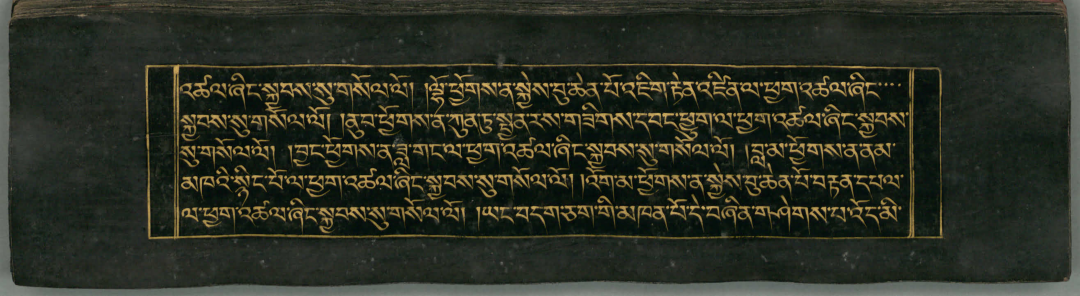 འཚལ་ཞིང་སྐྱབས་སུ་གསོལ་ལོ། །ལྷོ་ཕྱོགས་ན་སྐྱེས་བུ་ཆེན་པོ་འཇིག་རྟེན་འཛིན་ལ་ཕྱག་འཚལ་ཞིང་····
སྐྱབས་སུ་གསོལ་ལོ། །ནུབ་ཕྱོགས་ན་ཀུན་ཏུ་སྤྱན་རས་གཟིགས་དབང་ཕྱུག་ལ་ཕྱག་འཚལ་ཞིང་སྐྱབས་
སུ་གསོལ་ལོ། །བྱང་ཕྱོགས་ན་ཟླ་ག་ང་ལ་ཕྱག་འཚལ་ཞིང་སྐྱབས་སུ་གསོལ་ལོ། །བླ་མ་ཕྱོགས་ན་ནམ་
མཁའི་སྙིང་པོ་ལ་ཕྱག་འཚལ་ཞིང་སྐྱབས་སུ་གསོལ་ལོ། །འོག་མ་ཕྱོགས་ན་སྐྱེས་བུ་ཆེན་པོ་བརྟན་དཔལ་
ལ་ཕྱག་འཚལ་ཞིང་སྐྱབས་སུ་གསོལ་ལོ། །ཡང་བདག་ཅག་གི་མཁན་པོ་དེ་བཞིན་གཤེགས་པ་འོད་མི་